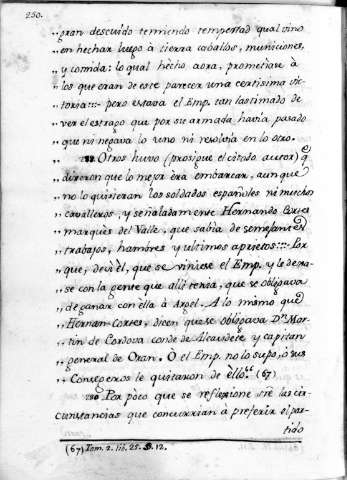 250.
,, gran descuido temiendo tempestad qual vino
,, en hechar luego à tierra caballos, municiones,
,, y comida: lo qual hecho aora, prometiase à
,, los que eran de este parecer una certisima vic-
,, toria::- pero estava el Emp. tan lastimado de
,, ver el estrago que por su armada havia pasado
,, que ni negava lo uno ni resolvia en lo otro.
,, Otros huvo (prosigue el citado autor) q
,, dixeron que lo mejor era embarcar, aunque
,, no lo quisieran los soldados españoles ni muchos
,, cavalleros, y señaladamente Hernando Cortes
,, marques del Valle, que sabia de semejantes
,, trabajos, hambres y ultimos aprietos::- Por
,, que, decia èl, que se viniese el Emp. y le dexa-
,, se con la gente que alli tenia, que se obligava
,, de ganar con ella à Argel. A lo mismo que
,, Hernan-Cortes, dicen que se obligava Dn. Mar-
,, tin de Cordova conde de Alcaudete y capitan
,, general de Oran. O el Emp. no lo supo, ó sus
,, Consegeros le quitaron de ello." (67)
Por poco que se reflexione sre las cir-
cunstancias que concurrian à preferir el par-
tido
(67) Tom. 2. lib. 25. §. 12.